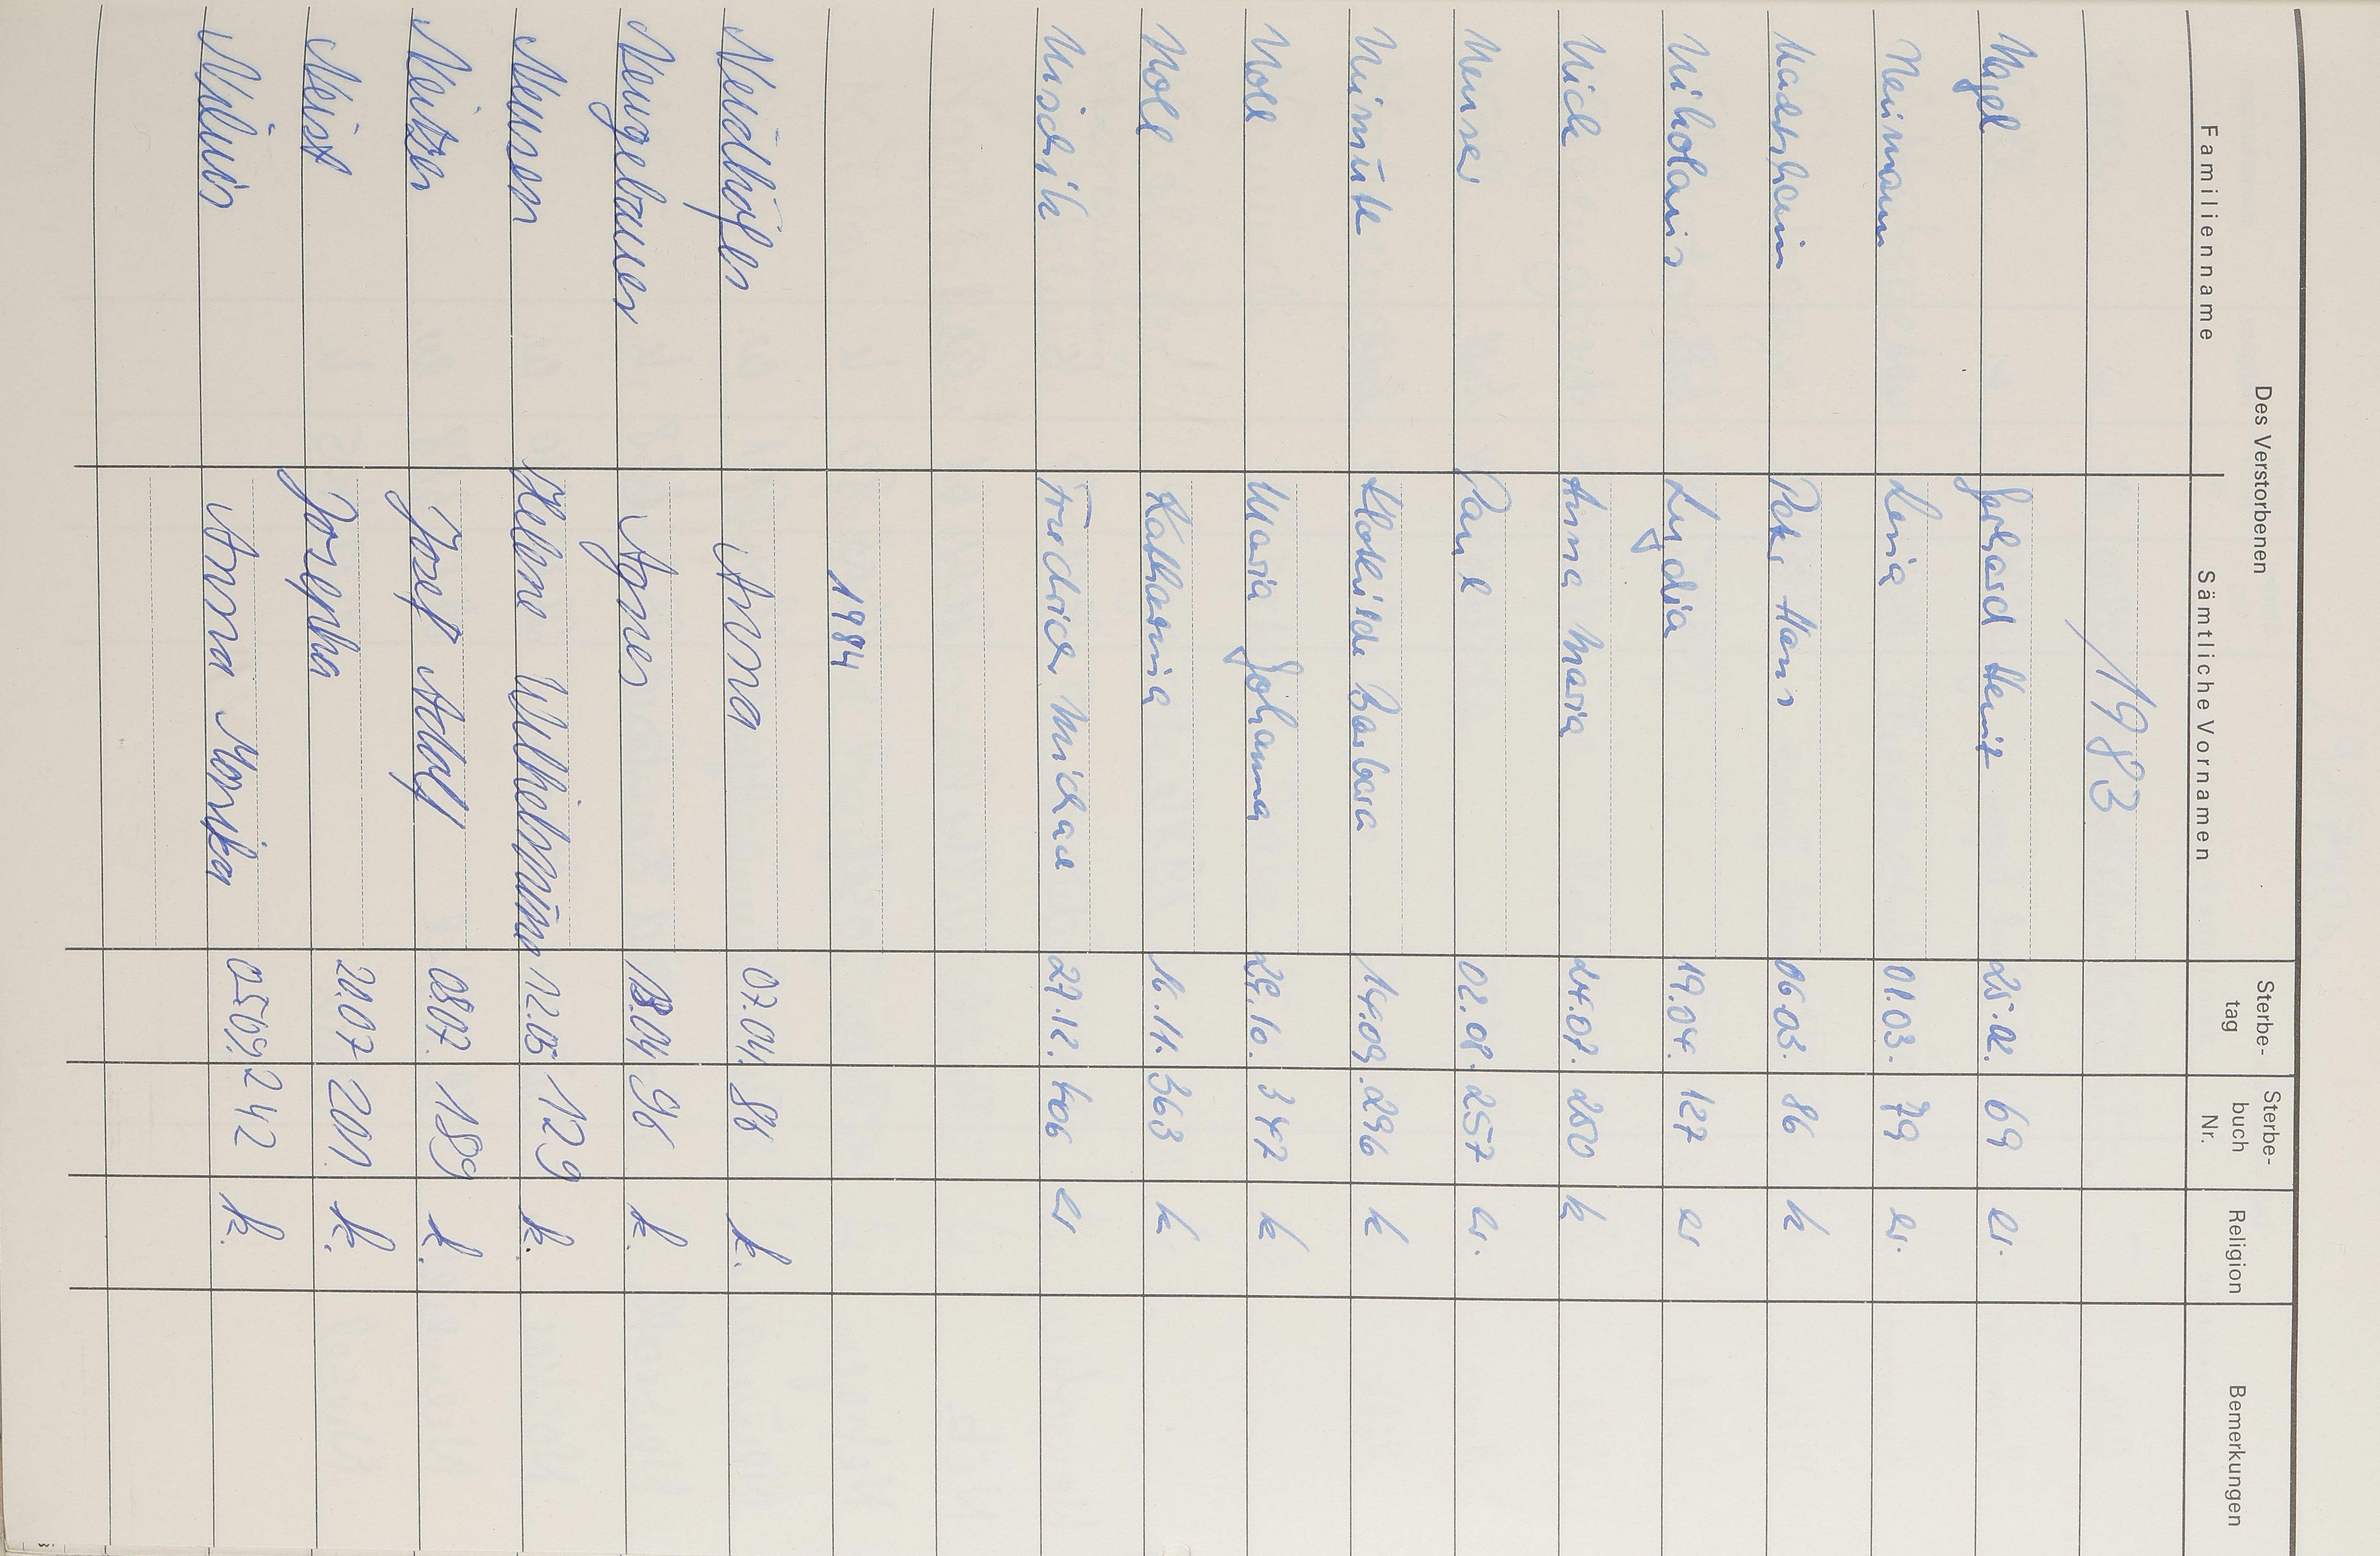 Des Verstorbenen
Familienname Sämtliche Vornamen Sterbe-tag Sterbe-buch Nr. Religion Bemerkungen
1983
Nagel Gerhard Heinz 25.02. 69 ev.
Neumann Xenia 01.03. 79 ev.
Peter Hans 06.03. 86 k
Nikolaus Lydia 19.04. 127 ev
Nick Anna Maria 24.07. 250 k
Neuser Paul 02.08. 257 ev.
Klothilde Barbara 14.09. 296 k
Noll Maria Johanna 29.10. 347 k
Noll Katharina 16.11. 363 k
Friedrich Michael 27.12. 406 ev
1984
Neidhöfer Anna 07.04. 86 k.
Neugebauer Agnes 18.04 96 k.
Neuson Helene Wilhelmine 12.05 129 k.
Neitzer Josef Adolf 08.07. 189 k.
Neist Josepha 20.07 201. k.
Anna Monika 05.09. 242 k.